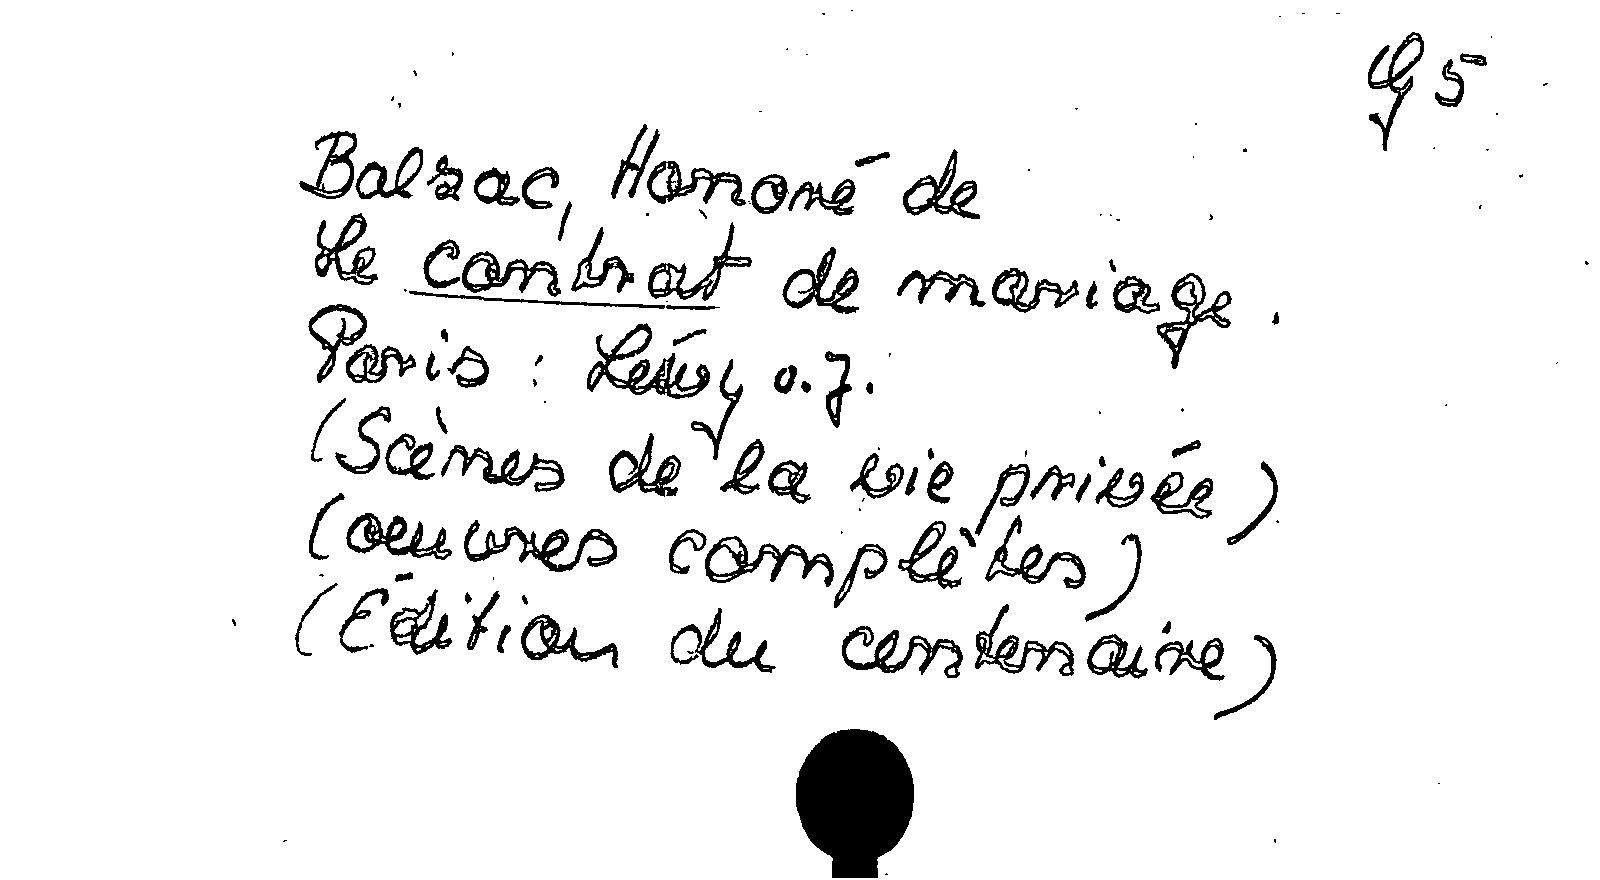 G 5
Balzac, Honoré de
Le contrat de mariage.
Paris: Lévy o.J.
(Scènes de la vie privée)
(oeuvres complètes)
(Édition du centenaire)